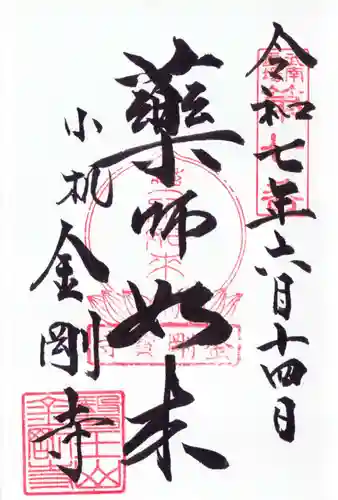 令和七年六月十四日
薬師如来
小机
金剛寺